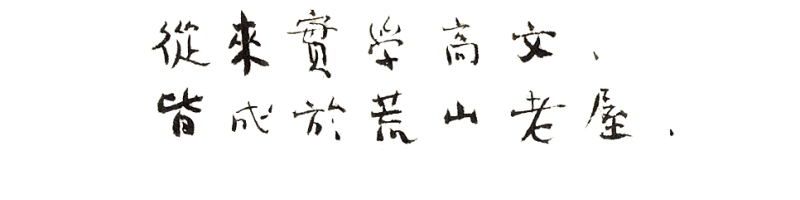 從來實學高文、
皆成於荒山老屋.